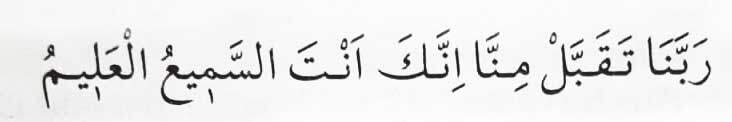 رَبَّنَا تَقَبَّلْ مِنَّا اِنَّكَ اَنْتَ السَّمٖيعُ الْعَلٖيمُ